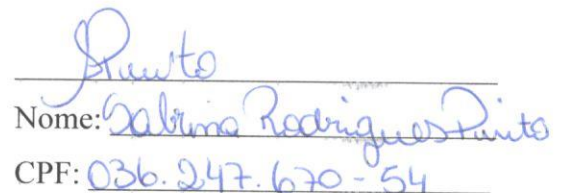 SPinto
Nome: Sabrina Rodrigues Pinto
CPF: 036.247.670-54